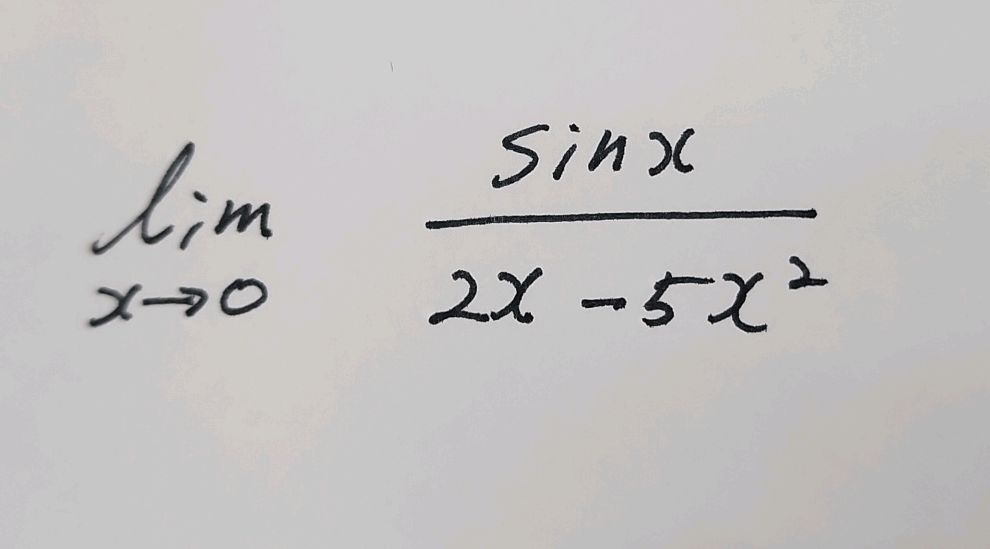 lim x→0 sinx / 2x - 5x²